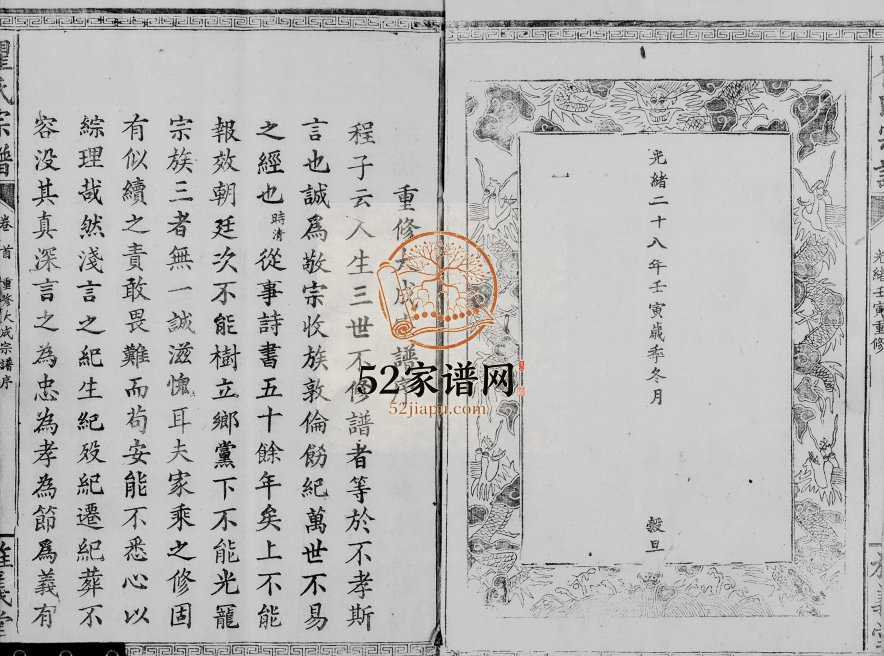 光緒壬寅重修
光緒二十八年壬寅歲季冬月
穀旦
一
重修大成宗譜序
程子云人生三世不修譜者等於不孝斯
言也誠爲敬宗收族敦倫飭紀萬世不易
之經也時清從事詩書五十餘年矣上不能
報效朝廷次不能樹立鄉黨下不能光寵
宗族三者無一誠滋愧耳夫家乘之修固
有似續之責敢畏難而苟安能不悉心以
綜理哉然淺言之紀生紀歿紀遷紀葬不
容没其真深言之為忠為孝為節爲義有
氏宗譜
卷首
重修大成宗譜序
52家谱网
52jiapu.com